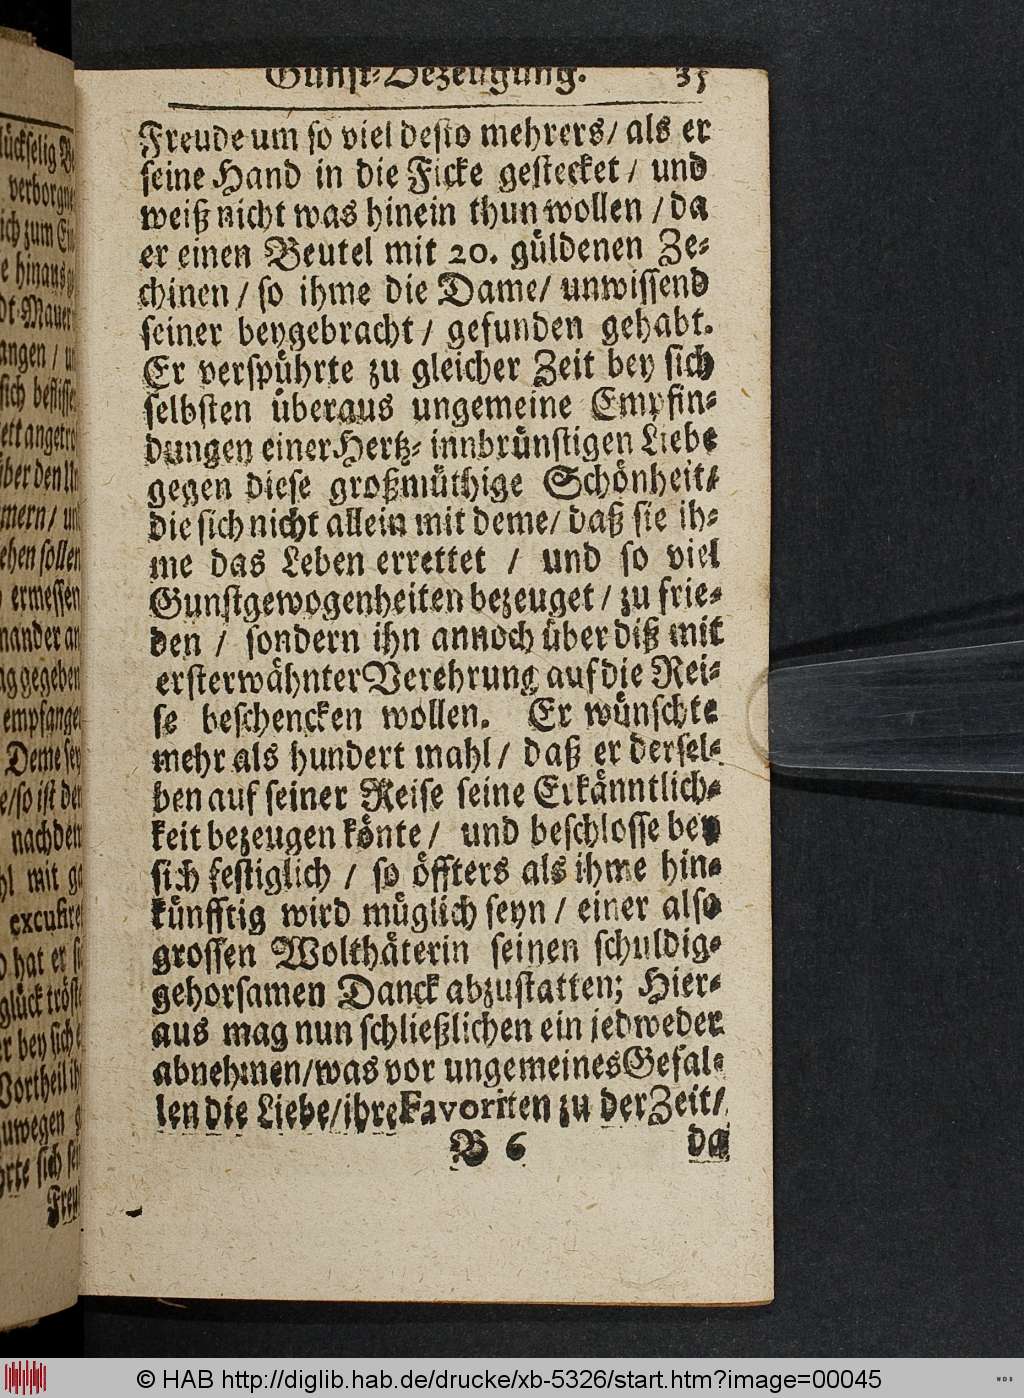 Gunst-Bezeugung. 35
Freude um so viel desto mehrers/ als er
seine Hand in die Ficke gestecket / und
weiß nicht was hinein thun wollen / da
er einen Beutel mit 20. güldenen Ze-
chinen / so ihme die Dame/ unwissend
seiner beygebracht / gefunden gehabt.
Er verspührte zu gleicher Zeit bey sich
selbsten überaus ungemeine Empfin-
dungen einer Hertz- innbrünstigen Liebe
gegen diese großmüthige Schönheit/
die sich nicht allein mit deme/ daß sie ih-
me das Leben errettet / und so viel
Gunstgewogenheiten bezeuget / zu frie-
den / sondern ihn annoch über diß mit
ersterwähnter Verehrung auf die Rei-
se beschencken wollen. Er wünschte
mehr als hundert mahl / daß er dersel-
ben auf seiner Reise seine Erkänntlich-
keit bezeugen könte / und beschlosse bey
sich festiglich / so öffters als ihme hin-
künfftig wird müglich seyn / einer also
grossen Wolthäterin seinen schuldig-
gehorsamen Danck abzustatten; Hier-
aus mag nun schließlichen ein jedweder
abnehmen/was vor ungemeines Gefal-
len die Liebe/ihre Favoriten zu der Zeit/
B 6 da
lückselig
verborgne
ich zum
e hinaus
dt-Mauer
angen /
sich
über den
mern/
ehen sollen
ermessen
nander an
ag gegeben
empfangen
Deme sey
e/so ist der
nachdem
hl mit
hat er
glück
r bey sich
Vortheil
uwegen
hrte sich
Freu
© HAB http://diglib.hab.de/drucke/xb-5326/start.htm?image=00045